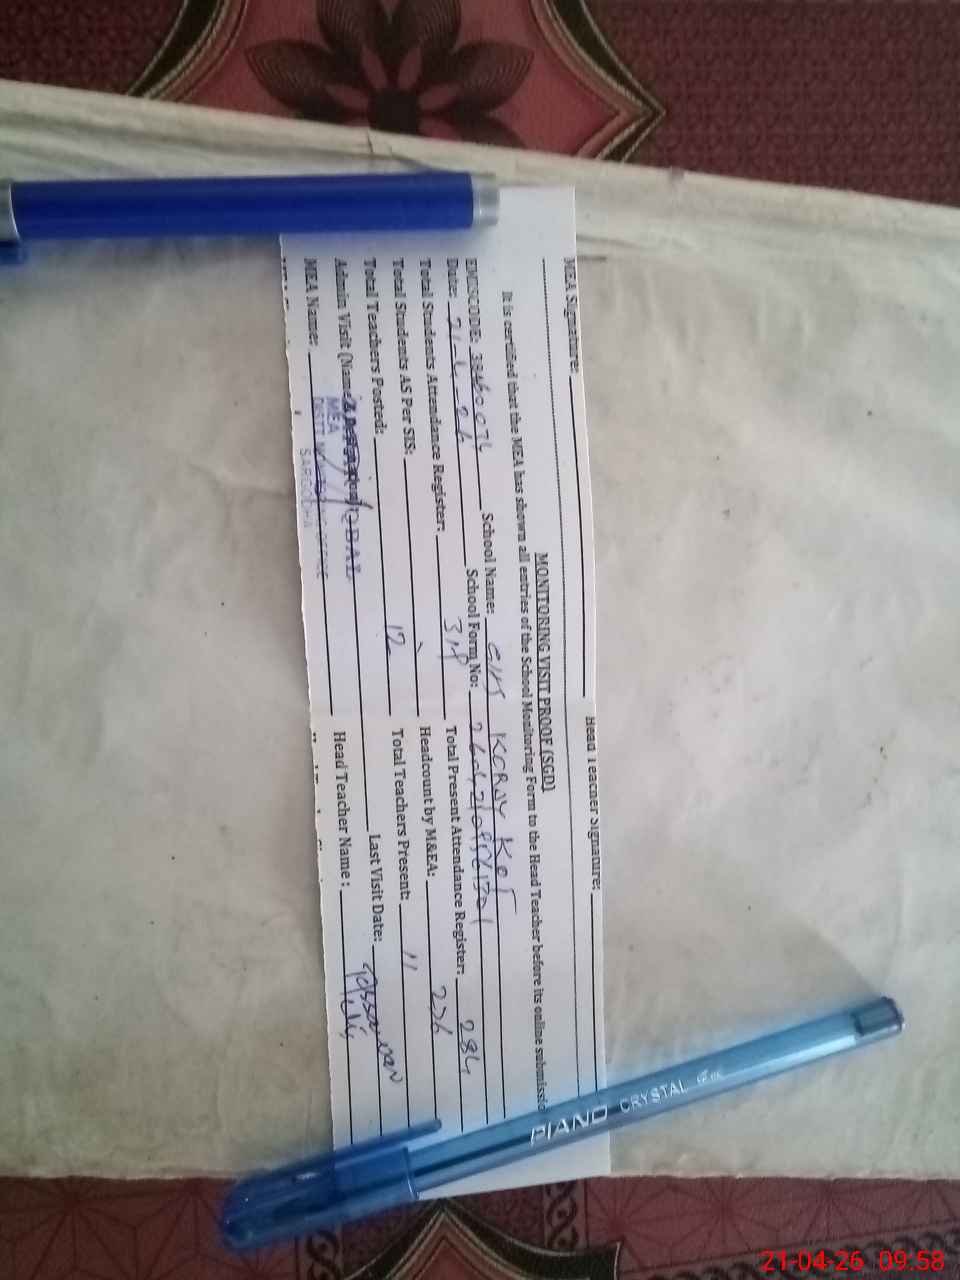 MEA Signature: Head Teacher Signature:
MONITORING VISIT PROOF (SGD)
It is certified that the MEA has shown all entries of the School Monitoring Form to the Head Teacher before its online submissio
EMISCODE: School Name: KORAY KOT
Date: 21-4-26 School Form No:
Total Students Attendance Register: 318 Total Present Attendance Register: 284
Total Students AS Per SIS: Headcount by M&EA:
Total Teachers Posted: 12 Total Teachers Present: 11
Admin Visit (Name & IQBAL Last Visit Date:
MEA
MEA Name: Head Teacher Name:
SARGODHA
PIANO CRYSTAL
21-04-26 09:58